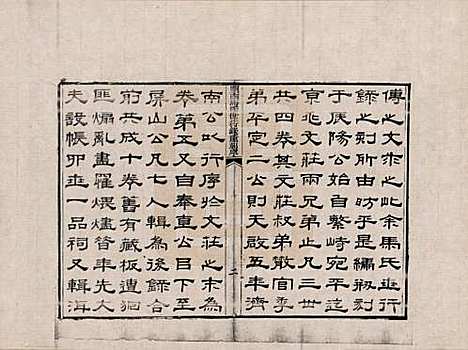 傳之文求之此余馬氏世行
錄之刻所由昉乎是編初刻
于慶陽公始自繁峙宛平迄
京兆文莊兩兄弟止凡三世
共四卷其文莊叔弟散官季
弟平定二公則天啟五年濟
關西馬氏世行錄重刻序
二
南公以行序於文莊之末為
卷第五又自奉直公目下至
屏山公凡七人輯為後錄合
前共成十卷舊有藏板遭
匪煽亂盡罹煨燼昔年先大
夫設帳世一品祠又輯